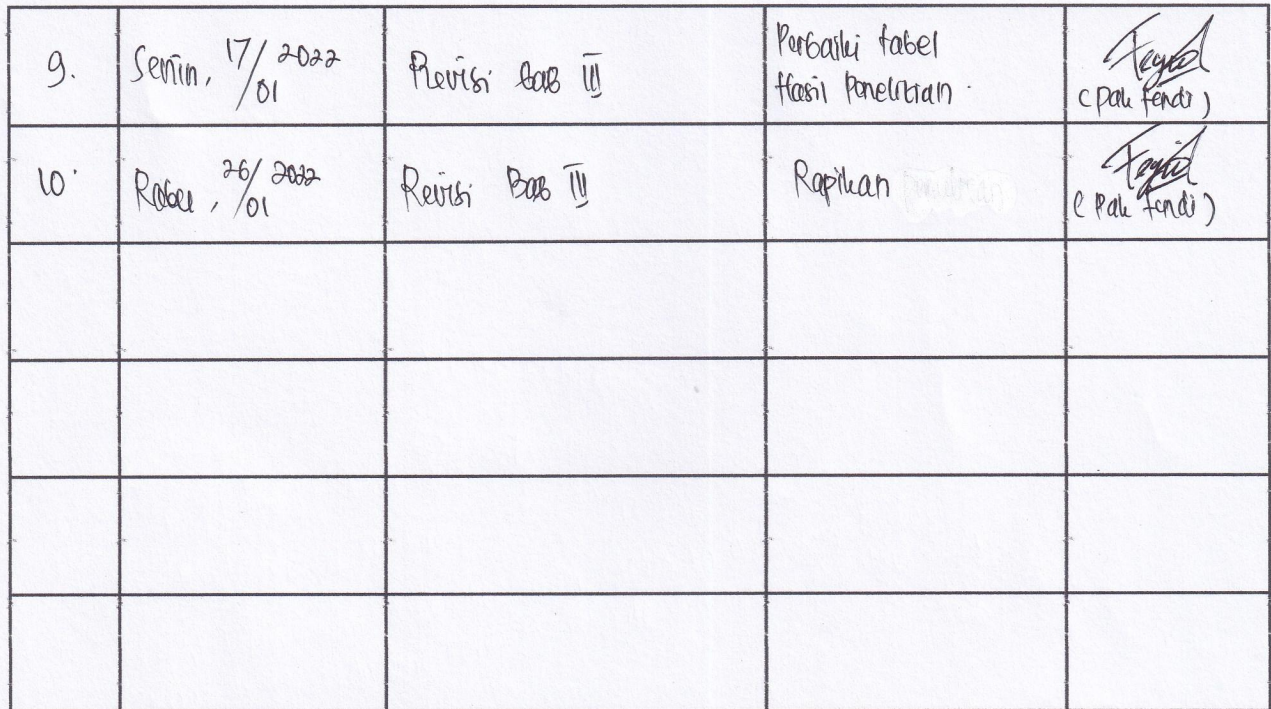 9.
Senin, 17/01 2022
Revisi Bab III
Perbaiki tabel
Hasil Penelitian.
(Pak Fendi)
10.
Rabu, 26/01 2022
Revisi Bab III
Rapikan
(Pak Fendi)